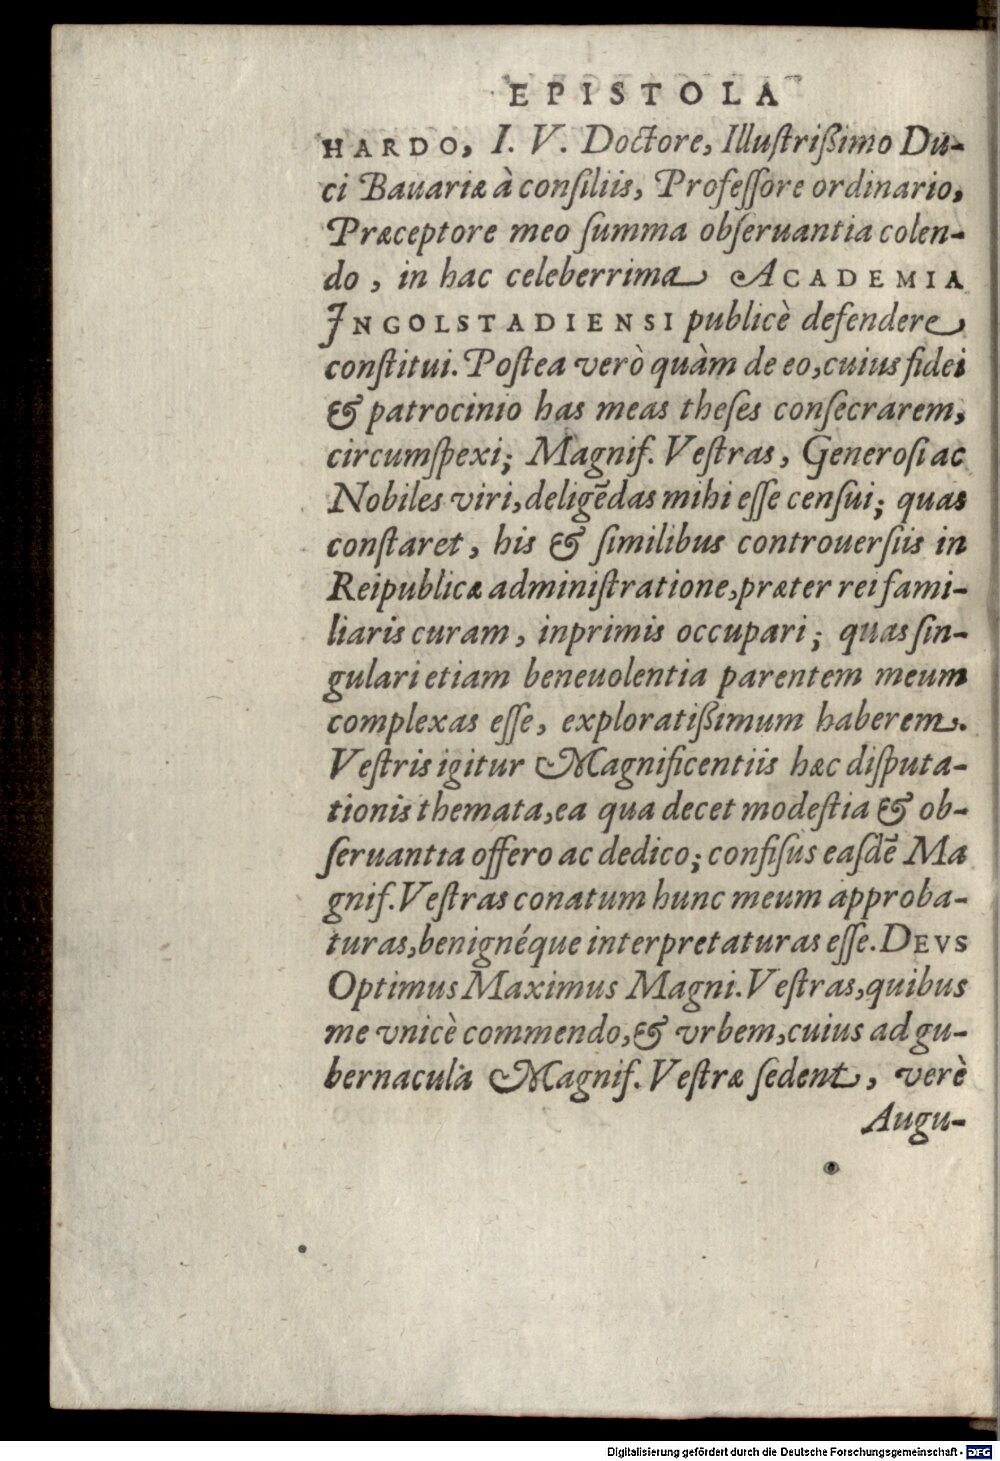 EPISTOLA
HARDO, I. V. Doctore, Illuſtriſsimo Du-
ci Bauariæ à conſiliis, Profeſſore ordinario,
Præceptore meo ſumma obſeruantia colen-
do, in hac celeberrima ACADEMIA
INGOLSTADIENSI publicè defendere
conſtitui. Poſtea verò quàm de eo, cuius fidei
& patrocinio has meas theſes conſecrarem,
circumſpexi; Magnif. Veſtras, Generoſi ac
Nobiles viri, deligēdas mihi eſſe cenſui; quas
conſtaret, his & ſimilibus controuerſiis in
Reipublicæ adminiſtratione, præter rei fami-
liaris curam, inprimis occupari; quas ſin-
gulari etiam beneuolentia parentem meum
complexas eſſe, exploratiſsimum haberem.
Veſtris igitur Magnificentiis hæc diſputa-
tionis themata, ea qua decet modeſtia & ob-
ſeruantia offero ac dedico; confiſus eaſdē Ma
gnif. Veſtras conatum hunc meum approba-
turas, benignéque interpretaturas eſſe. DEVS
Optimus Maximus Magni. Veſtras, quibus
me vnicè commendo, & vrbem, cuius ad gu-
bernacula Magnif. Veſtræ ſedent, verè
Augu-
Digitalisierung gefördert durch die Deutsche Forschungsgemeinschaft - DFG